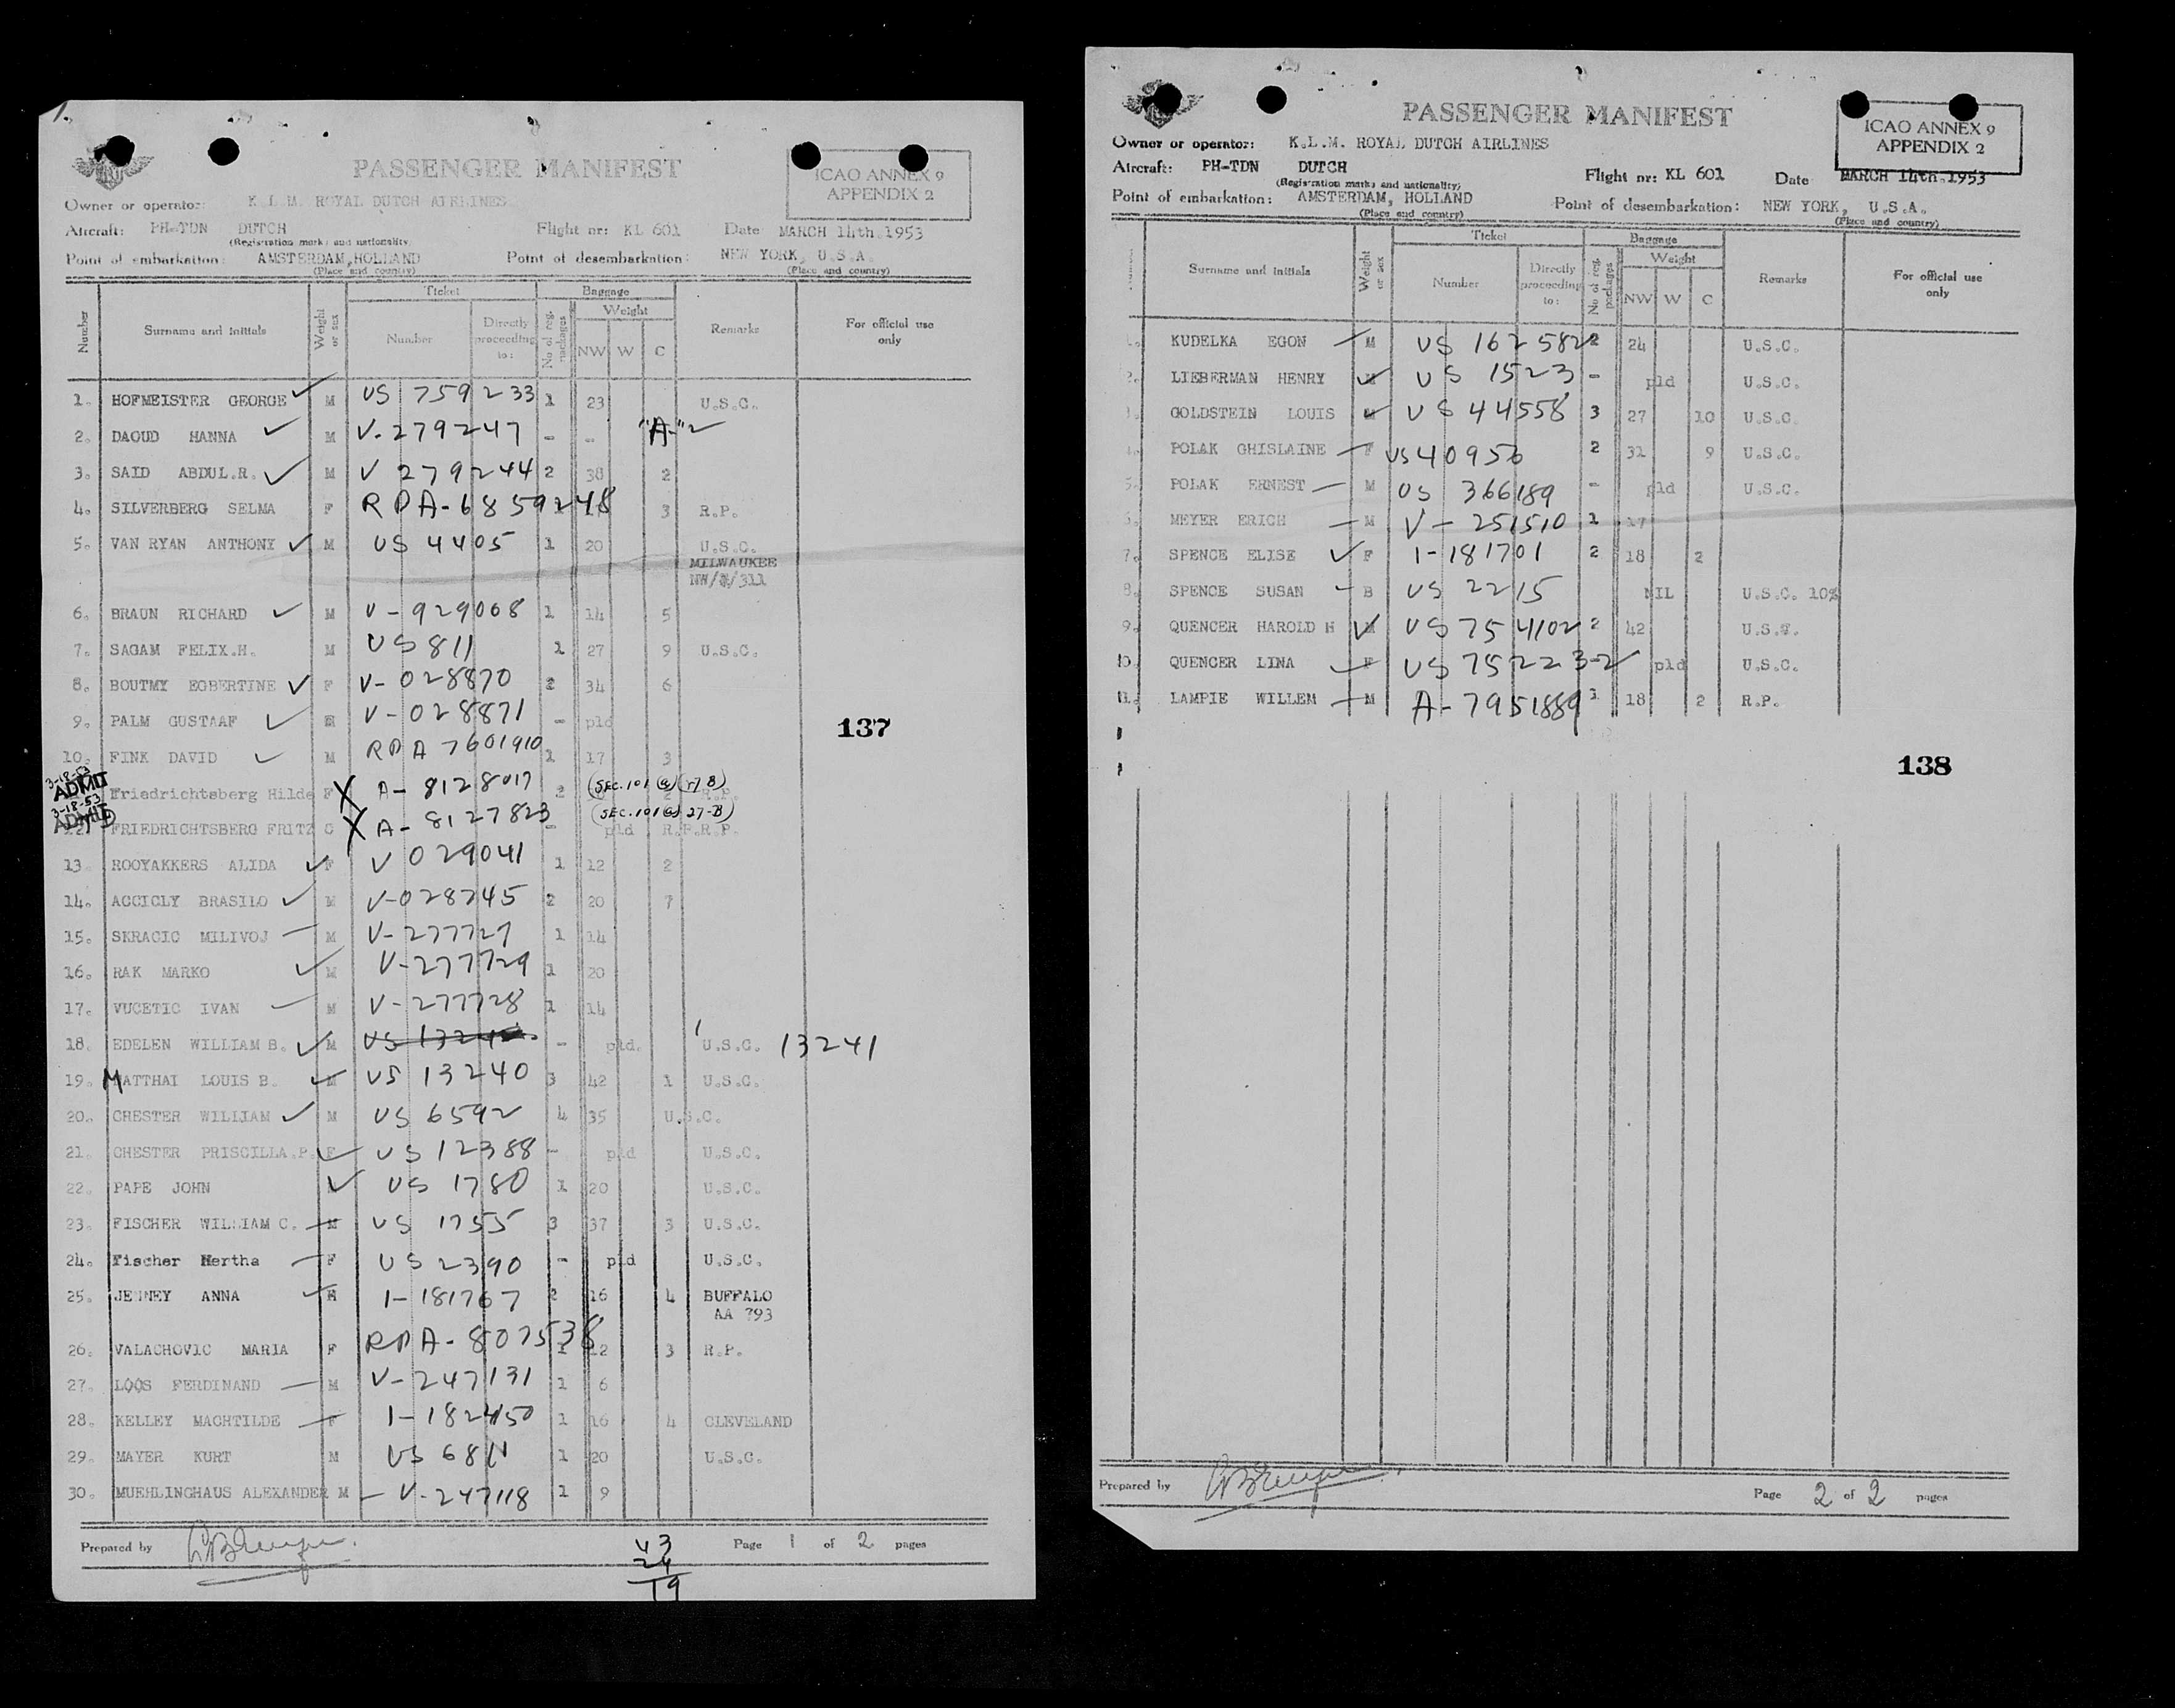 PASSENGER MANIFEST
ICAO ANNEX 9
APPENDIX 2
Owner or operator: K.L.M. ROYAL DUTCH AIRLINES
Aircraft: PH-TDN DUTCH Flight nr: KL 601 Date MARCH 14th.1953
(Registration marks and nationality)
Point of embarkation: AMSTERDAM,HOLLAND Point of desembarkation: NEW YORK, U.S.A.
(Place and country) (Place and country)
Number Surname and initials Weight or sex Ticket Number Directly proceeding to: No of reg. packages Baggage Weight NW W C Remarks For official use only
1. HOFMEISTER GEORGE M US 759233 1 23 U.S.C.
2. DAOUD HANNA M V-279247 - - "A-"
3. SAID ABDUL.R. M V 279244 2 38 2
4. SILVERBERG SELMA F RPA-6859248 3 R.P.
5. VAN RYAN ANTHONY M US 4405 1 20 U.S.C.
MILWAUKEE
NW/ /311
6. BRAUN RICHARD M V-929068 1 14 5
7. SAGAM FELIX.H. M US 811 1 27 9 U.S.C.
8. BOUTMY EGBERTINE F V-028870 2 34 6
9. PALM GUSTAAF V-028871 - pld
137
10. FINK DAVID M RPA 7601910 1 17 3
3-18-53
ADMIT
Friedrichtsberg Hilde F X A-8128017 2 (SEC.101(a)(27)B) 2 R.P.
3-18-53
ADMIT
12. FRIEDRICHTSBERG FRITZ C X A-8127823 - (SEC.101(a)27-B) pld R.P.R.P.
13. ROOYAKKERS ALIDA F V 029041 1 12 2
14. ACCICLY BRASILO M V-028245 2 20 7
15. SKRACIC MILIVOJ M V-277727 1 14
16. RAK MARKO M V-277729 1 20
17. VUCETIC IVAN M V-277728 1 14
18. EDELEN WILLIAM B. M - pld. U.S.C. 13241
19. MATTHAI LOUIS B. M US 13240 3 42 1 U.S.C.
20. CHESTER WILLIAM M US 6592 4 35 U.S.C.
21. CHESTER PRISCILLA.P. F US 12388 - pld U.S.C.
22. PAPE JOHN US 1780 1 20 U.S.C.
23. FISCHER WILLIAM C. M US 1755 3 37 3 U.S.C.
24. Fischer Hertha F US 2390 - pld U.S.C.
25. JENNEY ANNA 1-181767 2 16 4 BUFFALO
AA 793
26. VALACHOVIC MARIA F RPA-807538 1 12 3 R.P.
27. LOOS FERDINAND M V-247131 1 6
28. KELLEY MACHTILDE F 1-182450 1 16 4 CLEVELAND
29. MAYER KURT M US 6811 1 20 U.S.C.
30. MUEHLINGHAUS ALEXANDER M V-247118 1 9
Prepared by Page 1 of 2 pages
43
24
19
PASSENGER MANIFEST
ICAO ANNEX 9
APPENDIX 2
Owner or operator: K.L.M. ROYAL DUTCH AIRLINES
Aircraft: PH-TDN DUTCH Flight nr: KL 601 Date MARCH 14th.1953
(Registration marks and nationality)
Point of embarkation: AMSTERDAM, HOLLAND Point of desembarkation: NEW YORK, U.S.A.
(Place and country) (Place and country)
Surname and initials Weight or sex Ticket Number Directly proceeding to: No of reg. packages Baggage Weight NW W C Remarks For official use only
1. KUDELKA EGON M US 162582 2 24 U.S.C.
2. LIEBERMAN HENRY M US 1523 - pld U.S.C.
3. GOLDSTEIN LOUIS M US 44558 3 27 10 U.S.C.
4. POLAK GHISLAINE F US 40956 2 31 9 U.S.C.
5. POLAK ERNEST M US 366189 - pld U.S.C.
6. MEYER ERICH M V-251510 1 17
7. SPENCE ELISE F 1-181701 2 18 2
8. SPENCE SUSAN B US 2215 NIL U.S.C. 10%
9. QUENCER HAROLD H M US 754102 2 42 U.S.C.
10. QUENCER LINA F US 752232 pld U.S.C.
11. LAMPIE WILLEM M A-7951889 1 18 2 R.P.
138
Prepared by Page 2 of 2 pages